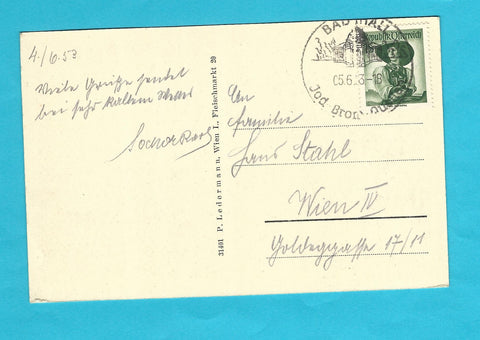 4./6.53
Viele Grüße sendet
bei sehr kaltem Wetter
31401 P. Ledermann, Wien I., Fleischmarkt 20
BAD HALL
05.6.53-18
Jod Brom
Republik Österreich
An
Familie
Hans Stahl
Wien IV
Goldeggasse 17/11